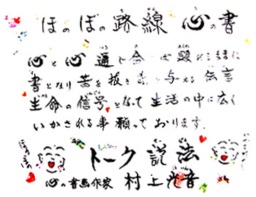 ほのぼの路線 心の書
心と心 通じ合 願 緒に
書となり 苦を抜き 与える 伝言
生命の信号となって生活の中に広く
いかされる事願っております。
トーク説法
心の書画作家 村上 音